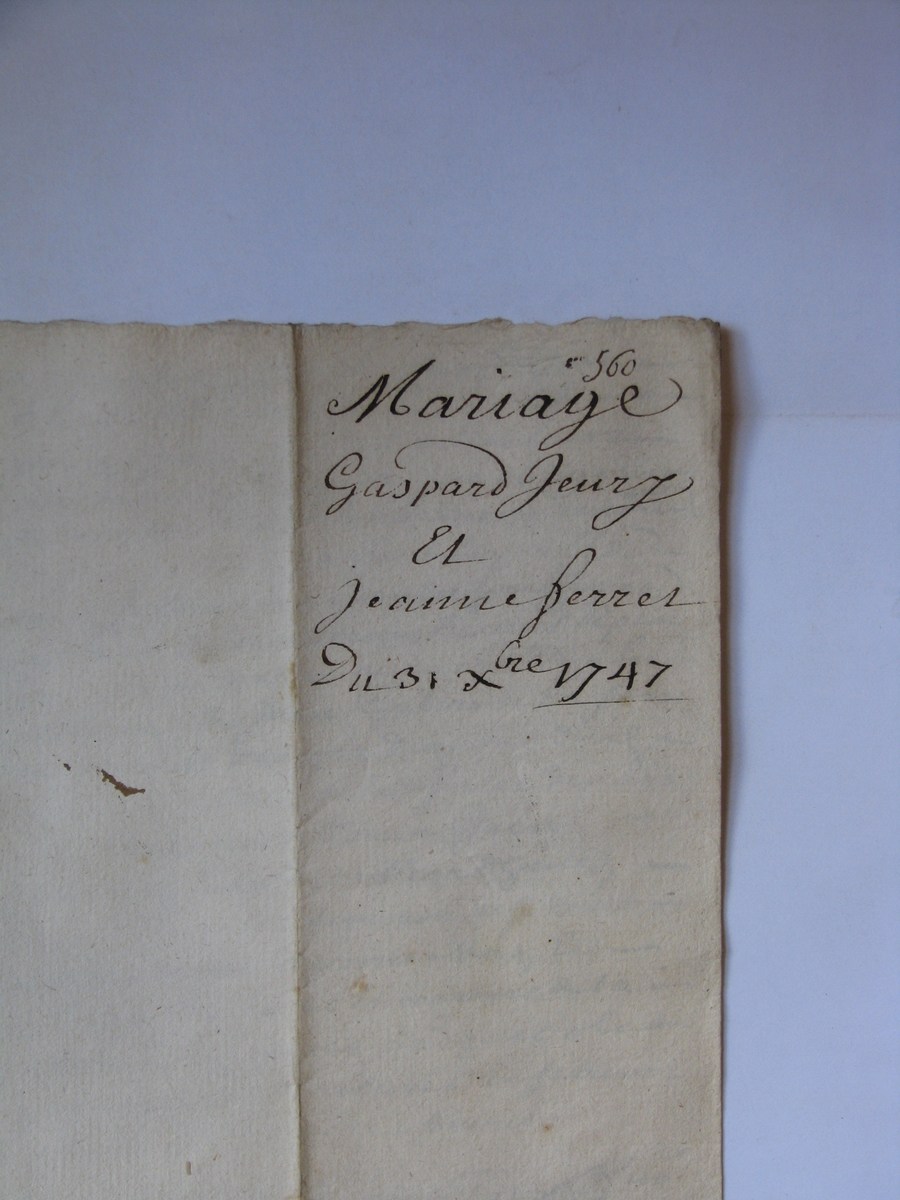 560
Mariage
Gaspard Jeury
Et
Jeanne ferret
Du 31 Xbre 1747